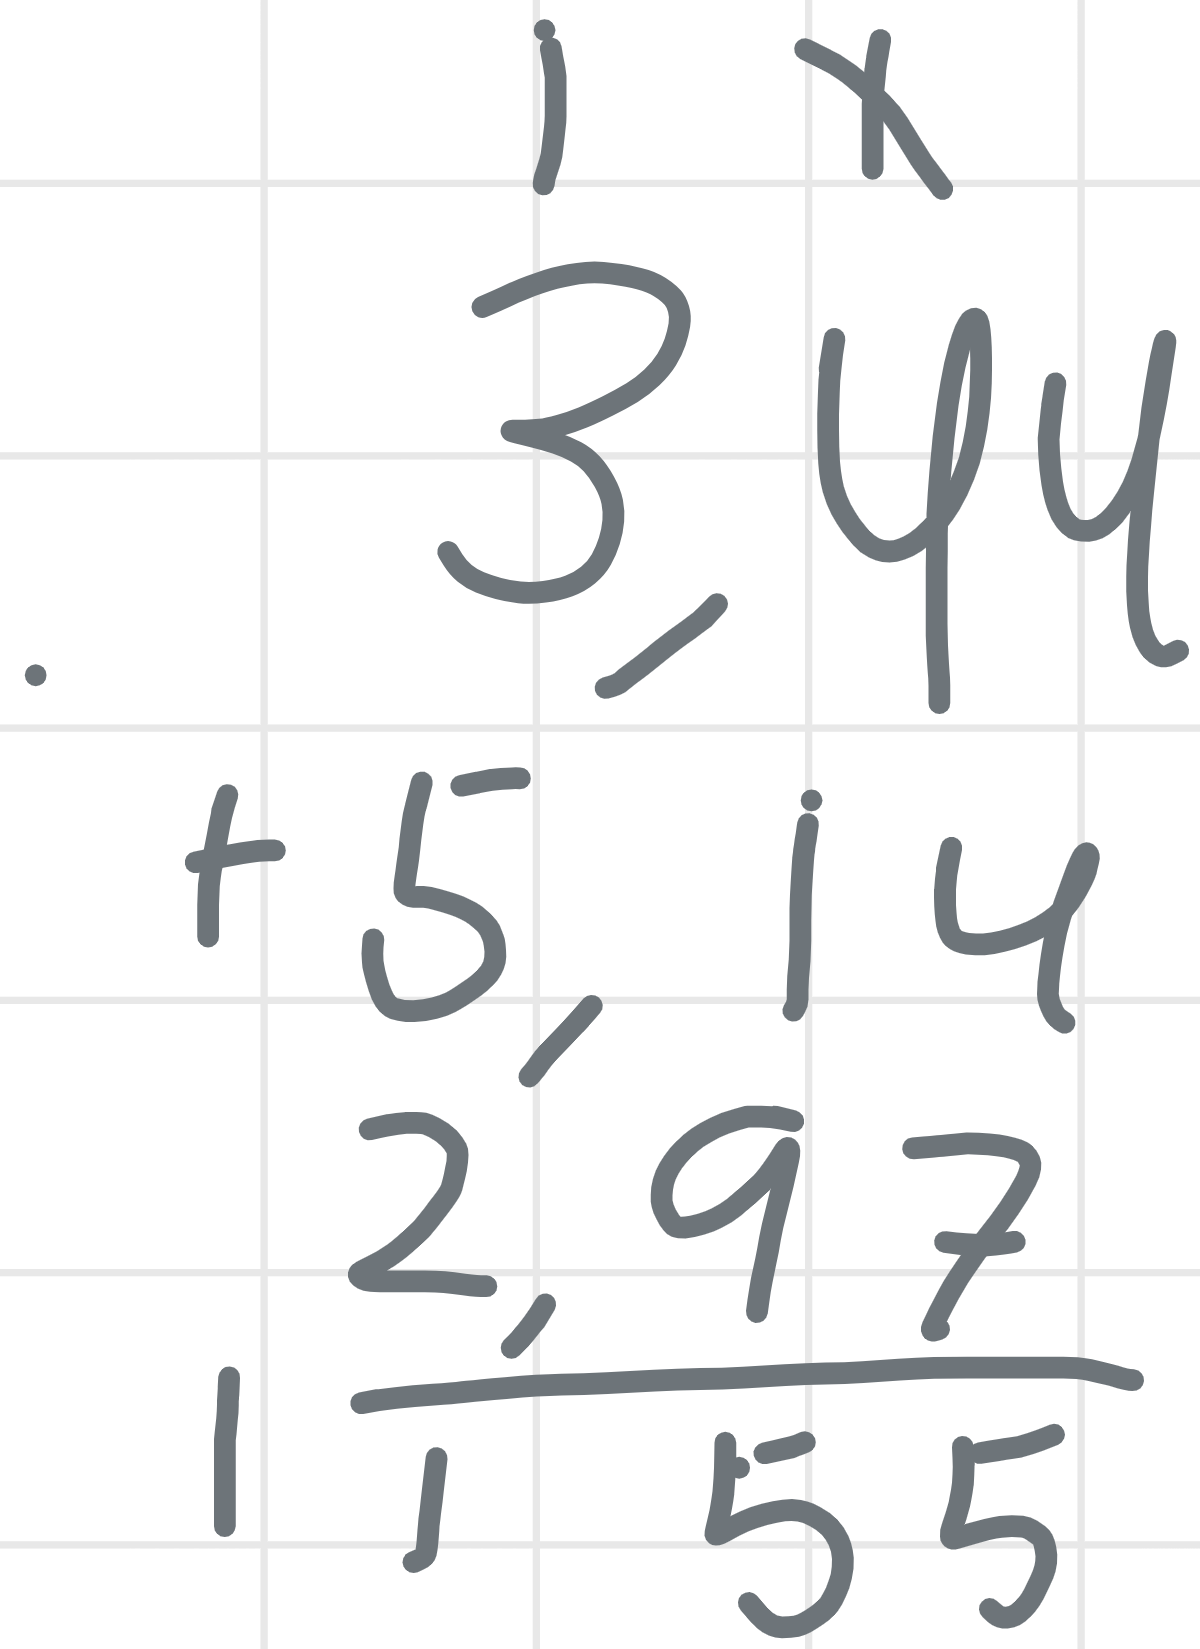 1 1
3,44
+ 5,14
2,97
11 55